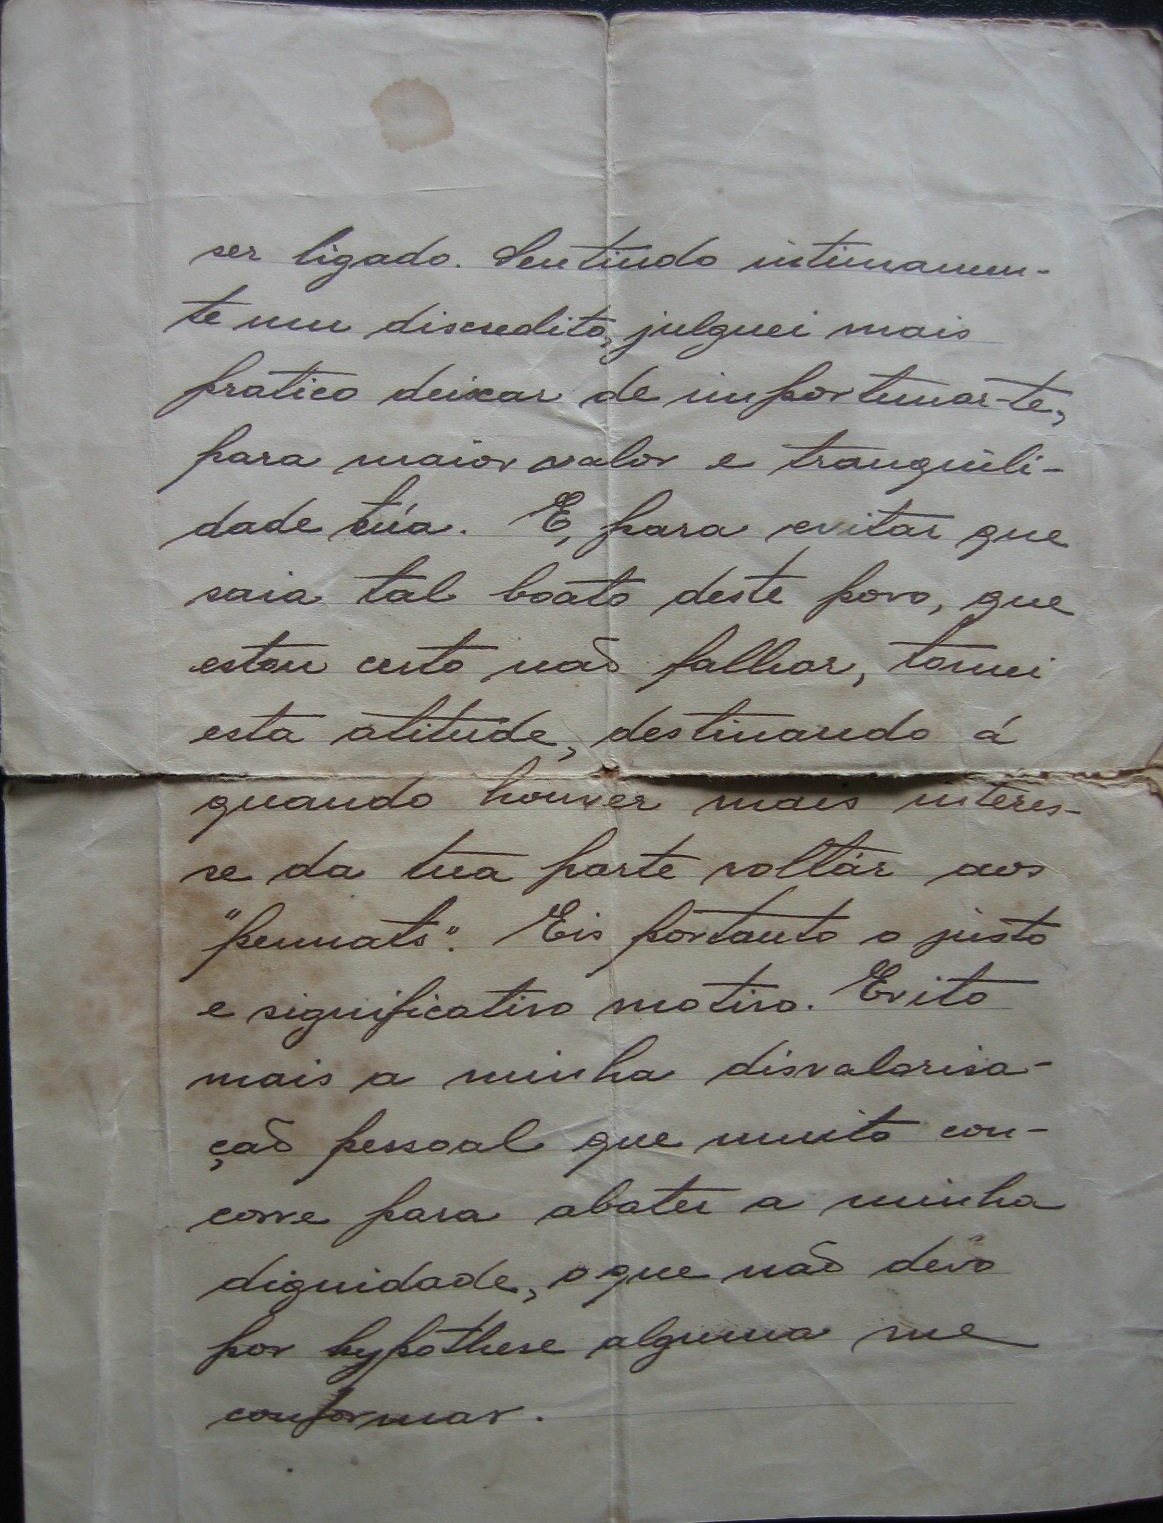 ser ligado. Sentindo intimamen-
te um discredito, julguei mais
pratico deixar de importunar-te,
para maior valor e tranquili-
dade túa. E, para evitar que
saia tal boato deste povo, que
estou certo não falhar, tomei
esta atitude, destinando á
quando houver mais interes-
se da tua parte voltár aos
"pennats". Eis portanto o justo
e significativo motivo. Evito
mais a minha disvalorisa-
ção pessoal que muito con-
corre para abater a minha
dignidade, o que não devo
por hypothese alguma me
conformar.